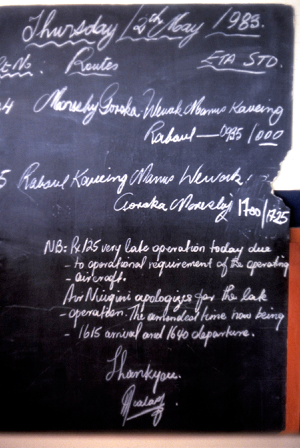 Thursday 12th May 1983.
Routes ETA STD.
4 Moresby Goroka Wewak Manus Kavieng
Rabaul — 0935/1000
5 Rabaul Kavieng Manus Wewak
Goroka Moresby 1700/1725
NB: Px125 very late operation today due
- to operational requirement of the operating
- aircraft.
Air Niugini apologizes for the late
- operation. The amended time now being
- 1615 arrival and 1640 departure.
Thankyou.